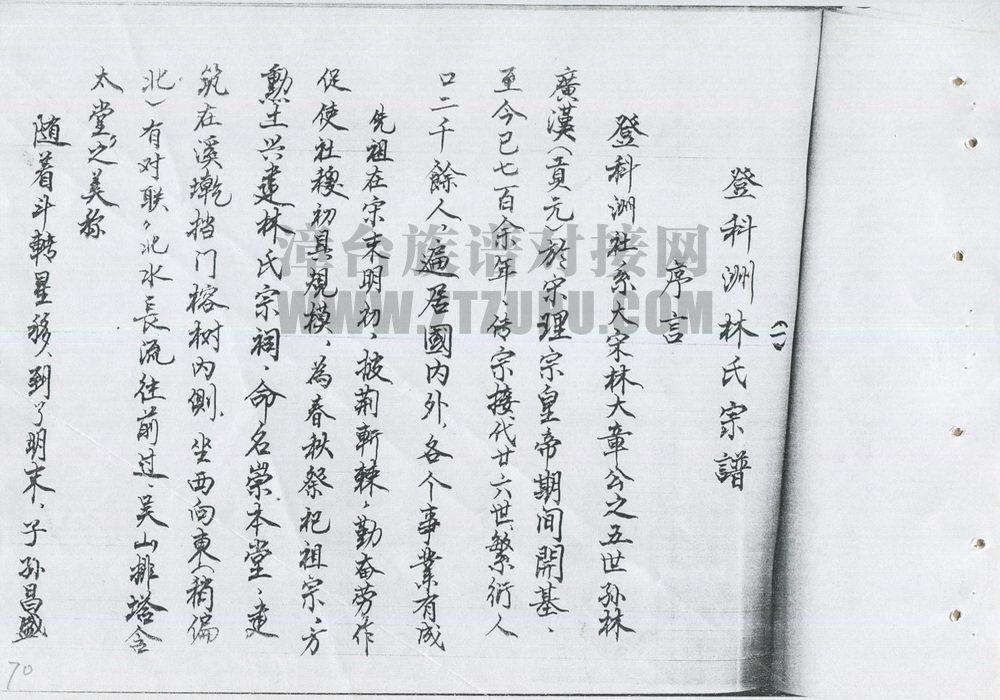 (一)
登科洲林氏宗譜
序言
登科洲社系大宋林大章公之五世孙林
廣漢(貢元)於宋理宗皇帝期间開基、
至今已七百余年、传宗接代廿六世、繁衍人
口二千餘人、遍居國内外、各个事業有成
先祖在宋末明初、披荆斬棘、勤奋劳作
促使社稷初具規模、為春秋祭祀祖宗、方
動土兴建林氏宗祠、命名崇本堂、建
筑在溪墘挡门榕树内側、坐西向東(稍偏
北)有对联,北水長流往前过、吴山排塔含
太堂,之美称
随着斗轉星移、到了明末、子孙昌盛
70
漳台族谱对接网
WWW.ZTZUPU.COM